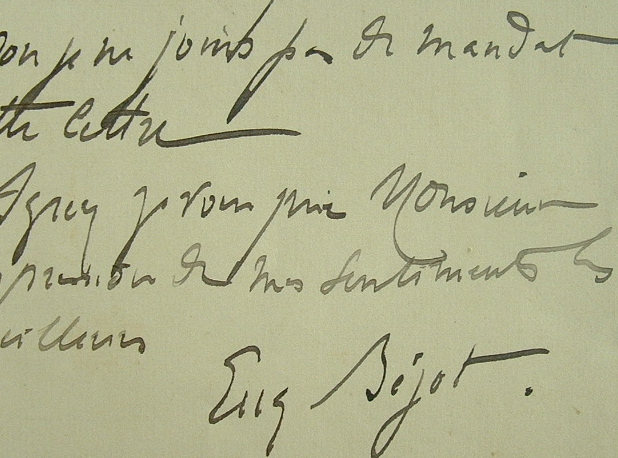 on je ne joins pas de mandat
tte lettre
Agréez je vous prie Monsieur
pression de mes sentiments les
eilleurs
Eug Béjot.